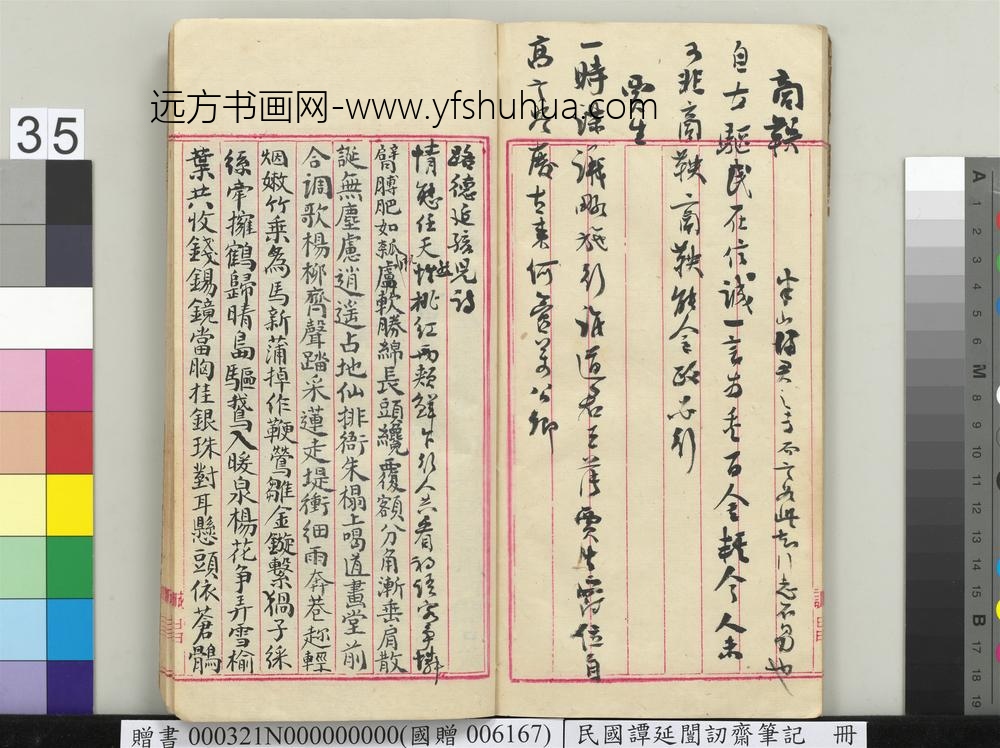 商鞅
自古驅民在信誠一言為重百金輕今人未
可非商鞅商鞅能令政必行
賈生
一時謀議略施行誰道君王薄賈生爵位自
高言盡廢古來何啻萬公卿
路德延孩兒詩
情態任天然桃紅兩頰鮮乍行人共看初語客爭憐
臂膊肥如瓠肌膚軟勝綿長頭纔覆額分角漸垂肩散
誕無塵慮逍遥占地仙排衙朱榻上喝道畫堂前
合調歌楊柳齊聲踏采蓮走堤衝細雨奔巷趂輕
烟嫩竹乘為馬新蒲掉作鞭鶯雛金鏇繫猧子綵
絲牢擁鶴歸晴島驅鵞入暖泉楊花爭弄雪榆
葉共收錢錫鏡當胸桂銀珠對耳懸頭依蒼鶻
远方书画网-www.yfshuhua.com
35
A 1 2 3 4 5 6 M 8 9 10 11 12 13 14 15 B 17 18 19
贈書 000321N000000000(國贈 006167)
民國譚延闓訒齋筆記 冊